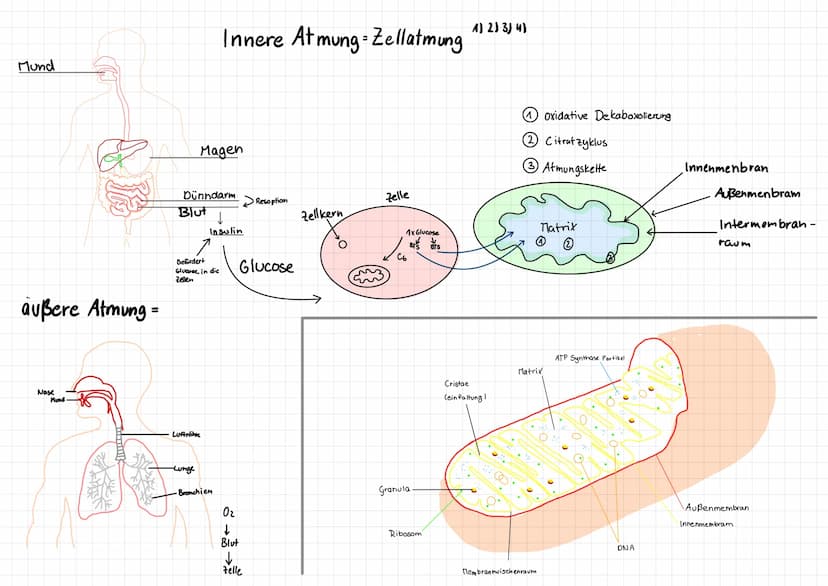 Innere Atmung = Zellatmung 1) 2) 3) 4)
Mund
Magen
Dünndarm
Resoption
Blut
Insulin
Befördert
Glucose, in die
Zellen
Glucose
Zelle
Zellkern
1x Glucose
C₆
① oxidative Dekaboxolierung
② Citratzyklus
③ Atmungskette
Innenmenbran
Außenmenbram
Intermembran-
raum
Matrix
① ②
äußere Atmung =
Nase
Mund
Luftröhre
Lunge
Bronchien
O₂
Blut
Zelle
ATP Synthase Partikel
Matrix
Cristae
(einfaltung)
Granula
Ribosom
Membranzwischenraum
DNA
Außenmembran
Innenmembram